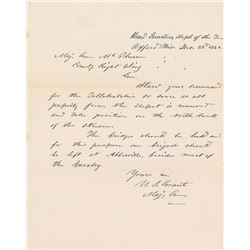 Head Quarters Dept of the
Oxford Miss. Dec. 22d 1862
Maj. Gen. McPherson
Comdg Right Wing
Gen.
Start your command
for the Tallahatchie as soon as all
property from the depot is removed
and take position on the North bank
of the stream.
The bridge should be held and
for this purpose one brigade should
be left at Abbeville besides most of
the Cavalry.
Yours &c
U. S. Grant
Maj. Gen